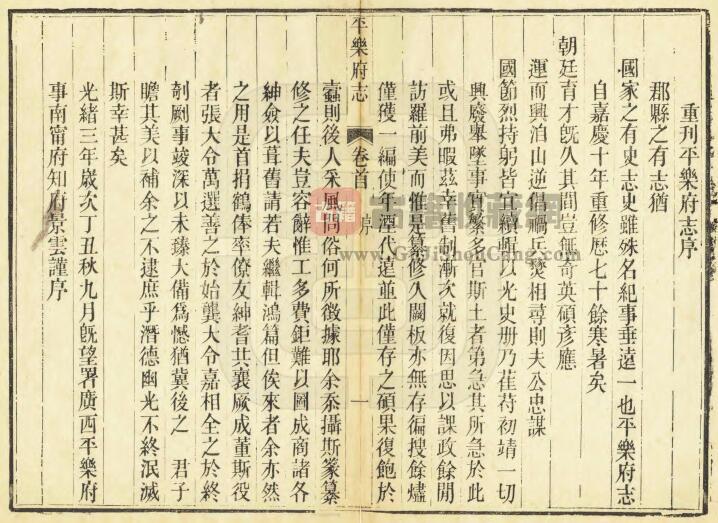 重刊平樂府志序
郡縣之有志猶
國家之有史志史雖殊名紀事垂遠一也平樂府志
自嘉慶十年重修歷七十餘寒暑矣
朝廷育才旣久其間豈無奇英碩彥應
運而興洎山逆倡禍兵燹相尋則夫公忠謀
國節烈持躬皆宜續輯以光史册乃萑苻初靖一切
興廢舉墜事實繁多官斯土者第急其所急於此
或且弗暇茲幸舊制漸次就復因思以課政餘閒
訪羅前美而惟是纂修久闕板亦無存徧搜餘燼
僅獲一編使年湮代遠並此僅存之碩果復飽於
平樂府志
卷首
序
一
蠹則後人采風問俗何所徵據耶余忝攝斯篆纂
修之任夫豈容辭惟工多費鉅難以圖成商諸各
紳僉以葺舊請若夫繼輯鴻篇但俟來者余亦然
之用是首捐鶴俸率僚友紳耆共襄厥成董斯役
者張大令萬選善之於始龔大令嘉相全之於終
剞劂事竣深以未臻大備爲憾猶冀後之 君子
瞻其美以補余之不逮庶乎潛德幽光不終泯滅
斯幸甚矣
光緒三年歲次丁丑秋九月旣望署廣西平樂府
事南甯府知府景雲謹序
古籍
古籍收藏網
www.GuJiShouCang.com